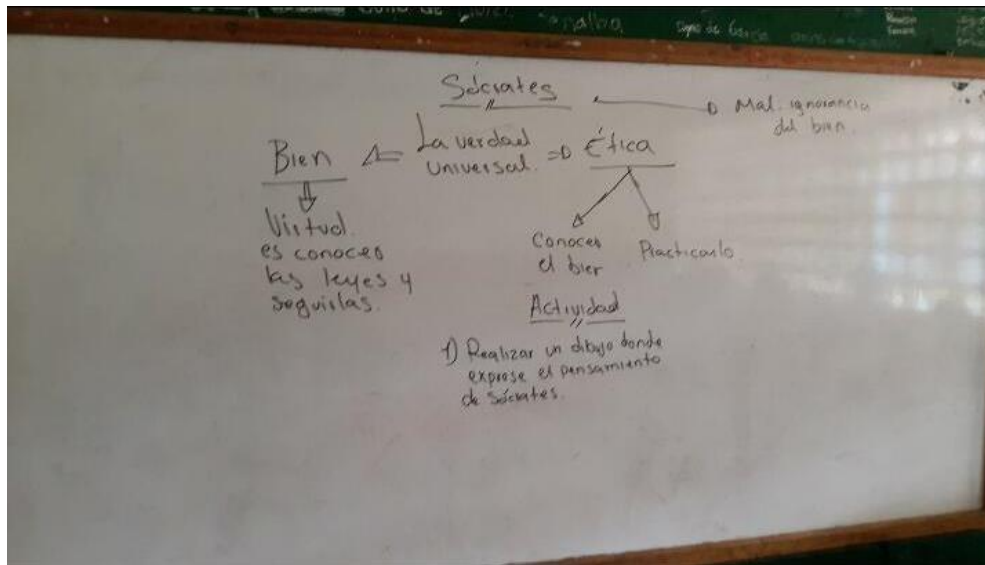 Sócrates
Mal: ignorancia
del bien.
La verdad
universal.
Bien
Ética
Virtud.
es conocer
las leyes y
seguirlas.
Conocer
el bien
Practicarlo.
Actividad
1) Realizar un dibujo donde
exprese el pensamiento
de Sócrates.